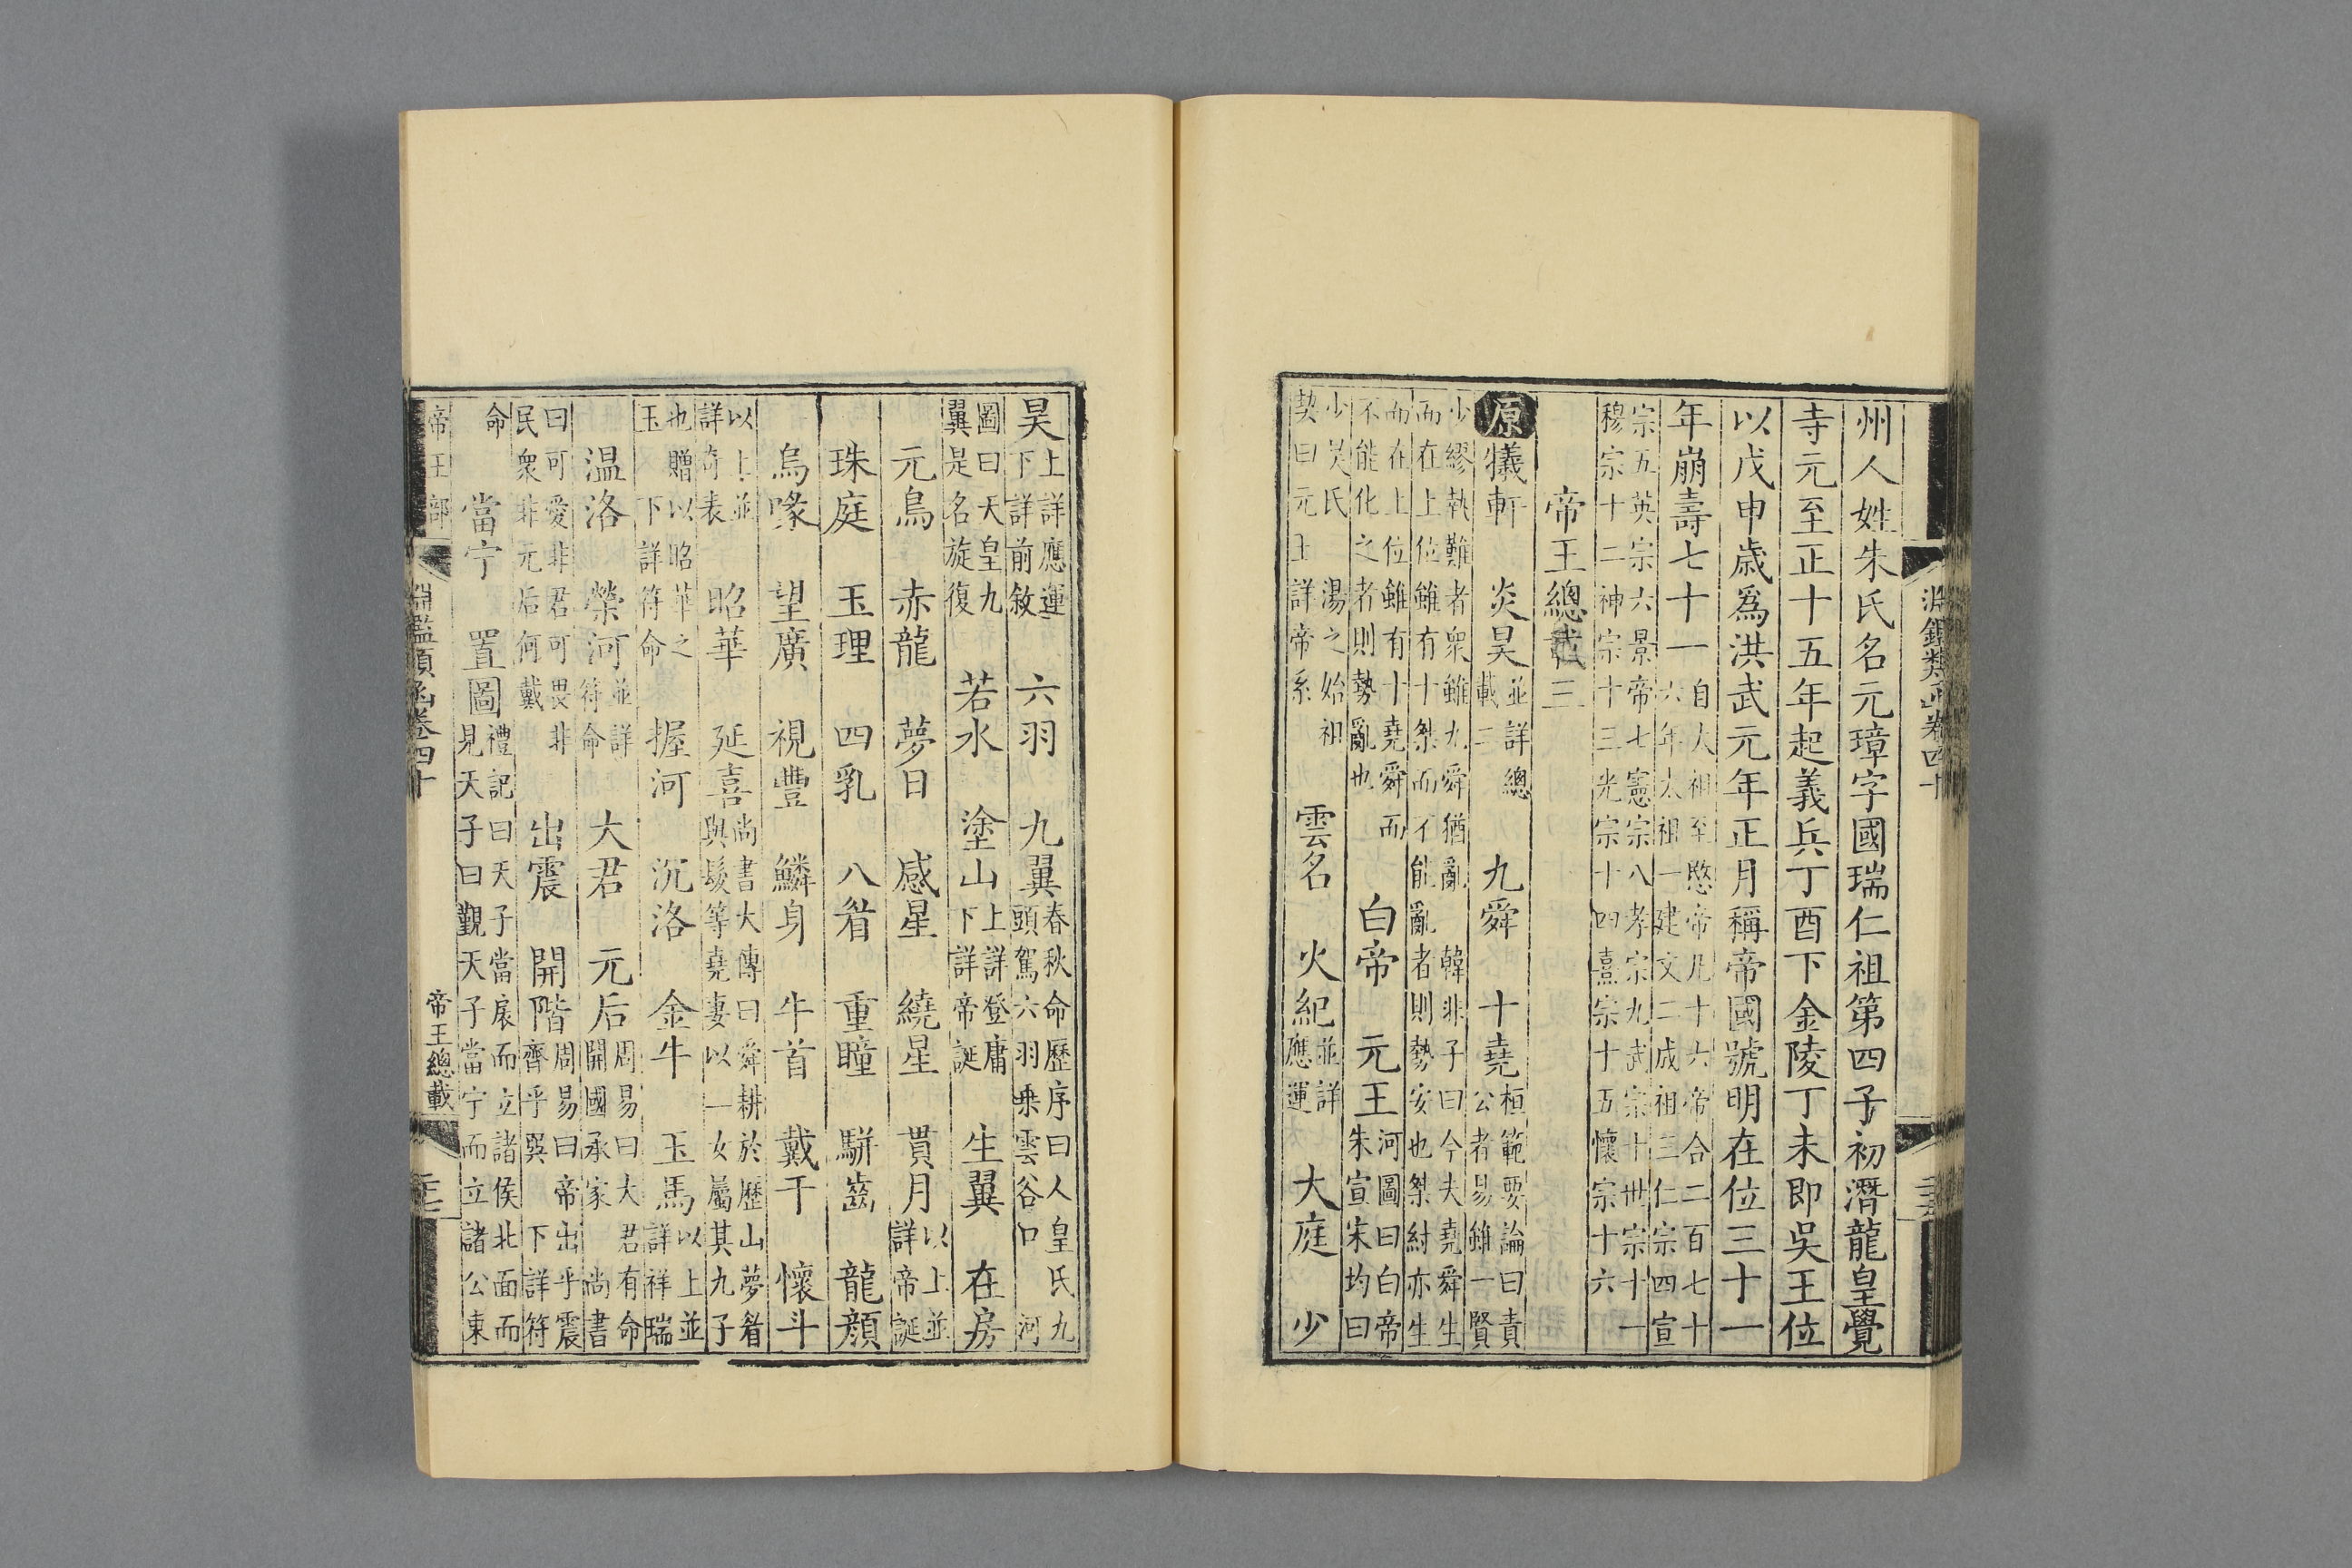 州人姓朱氏名元璋字國瑞仁祖第四子初潛龍皇覺
寺元至正十五年起義兵丁酉下金陵丁未即吳王位
以戊申歲爲洪武元年正月稱帝國號明在位三十一
年崩壽七十一
自大祖至愍帝凡十六帝合二百七十
六年太祖一建文二成祖三仁宗四宣
宗五英宗六景帝七憲宗八孝宗九武宗十世宗十一
穆宗十二神宗十三光宗十四熹宗十五懷宗十六
帝王總載三
原犧軒 炎昊
並詳總
載二
九舜 十堯
桓範要論曰責
公者易雖一賢
少繆執難者衆雖九舜猶亂 韓非子曰今夫堯舜生
而在上位雖有十桀而不能亂者則勢安也桀紂亦生
而在上位雖有十堯舜而
不能化之者則勢亂也
白帝 元王
河圖曰白帝
朱宣宋均曰
少昊氏 湯之始祖
契曰元王詳帝系
雲名 火紀
並詳
應運
大庭 少
昊
上詳應運
下詳前敘
六羽 九翼
春秋命歷序曰人皇氏九
頭駕六羽乘雲谷口 河
圖曰天皇九
翼是名旋復
若水 塗山
上詳登庸
下詳帝誕
生翼 在房
元鳥 赤龍 夢日 感星 繞星 貫月
以上並
詳帝誕
珠庭 玉理 四乳 八眉 重瞳 駢齒 龍顏
烏喙 望廣 視豐 鱗身 牛首 戴干 懷斗
以上並
詳奇表
昭華 延喜
尚書大傳曰舜耕於歷山夢眉
與髮等堯妻以一女屬其九子
也贈以昭華之
玉 下詳符命
握河 沉洛 金牛 玉馬
以上並
詳祥瑞
温洛 榮河
並詳
符命
大君 元后
周易曰大君有命
開國承家 尚書
曰可愛非君可畏非
民衆非元后何戴
出震 開階
周易曰帝出乎震
齊乎巽 下詳符
命
當宁 置圖
禮記曰天子當扆而立諸侯北面而
見天子曰覲天子當宁而立諸公東
帝王部
淵鑑類函卷四十
帝王總載